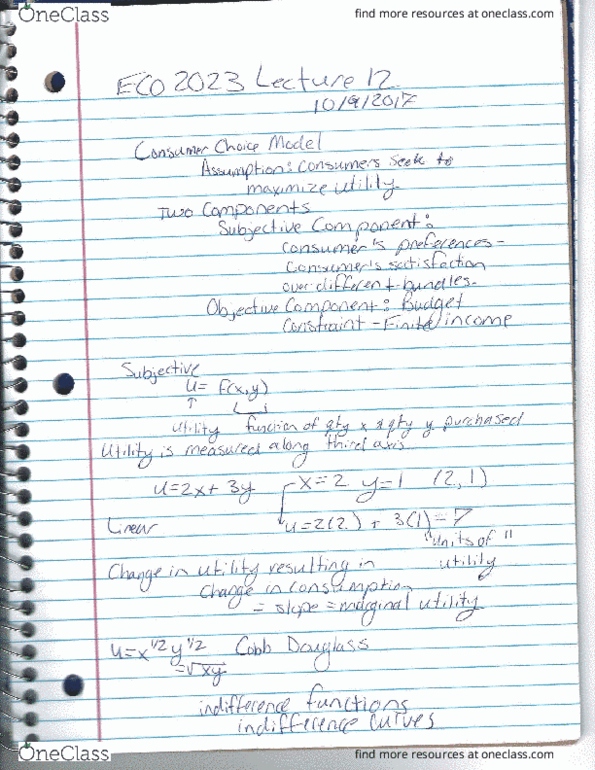 OneClass find more resources at oneclass.com
ECO 2023 Lecture 12
10/9/2017
Consumer Choice Model
Assumption: Consumers seek to
maximize utility
Two Components
Subjective Component:
Consumer's preferences -
Consumer's satisfaction
over different bundles.
Objective Component: Budget
Constraint - Finite income
Subjective
U = F(x,y)
↑
utility function of qty x & qty y purchased
Utility is measured along third axis
U=2x+3y x=2 y=1 (2,1)
Linear U=2(2)+3(1)=7
"units of"
utility
Change in utility resulting in
change in consumption
= slope = marginal utility
U=x^1/2 y^1/2 Cobb Douglass
=√xy
indifference functions
indifference curves
OneClass find more resources at oneclass.com